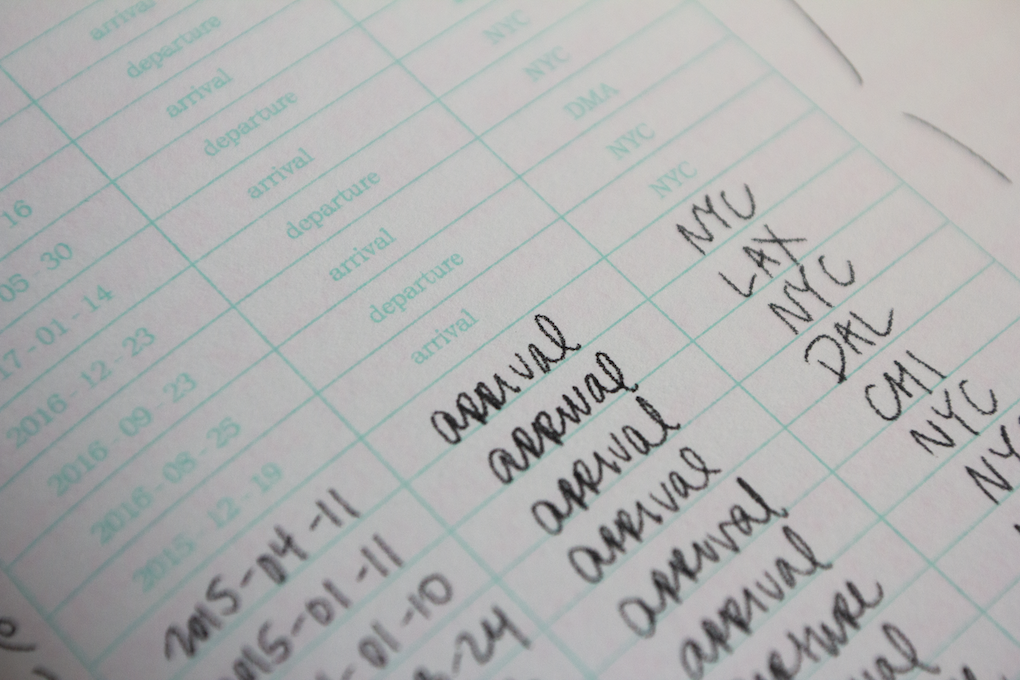 arrival
departure
16 arrival
05 - 30 departure
17 - 01 - 14 arrival NYC
2016 - 12 - 23 departure NYC
2016 - 09 - 23 arrival DMA
2016 - 08 - 25 departure NYC
2015 - 12 - 19 arrival NYC
2015-04-11 arrival NYC
2015-01-11 arrival LAX
-01-10 arrival NYC
-24 arrival DAL
arrival CMI
arrival NYC
ture NY
val